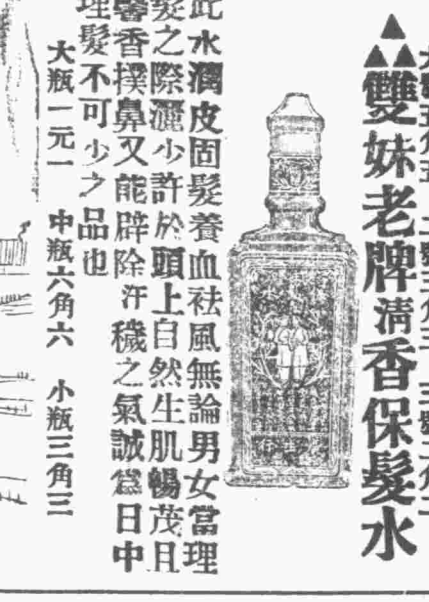 大號五角五 二號三角三 三號二角二
雙妹老牌清香保髮水
此水潤皮固髮養血袪風無論男女當理
髮之際灑少許於頭上自然生肌暢茂且
馨香撲鼻又能辟除汗穢之氣誠為日中
理髮不可少之品也
大瓶一元一 中瓶六角六 小瓶三角三